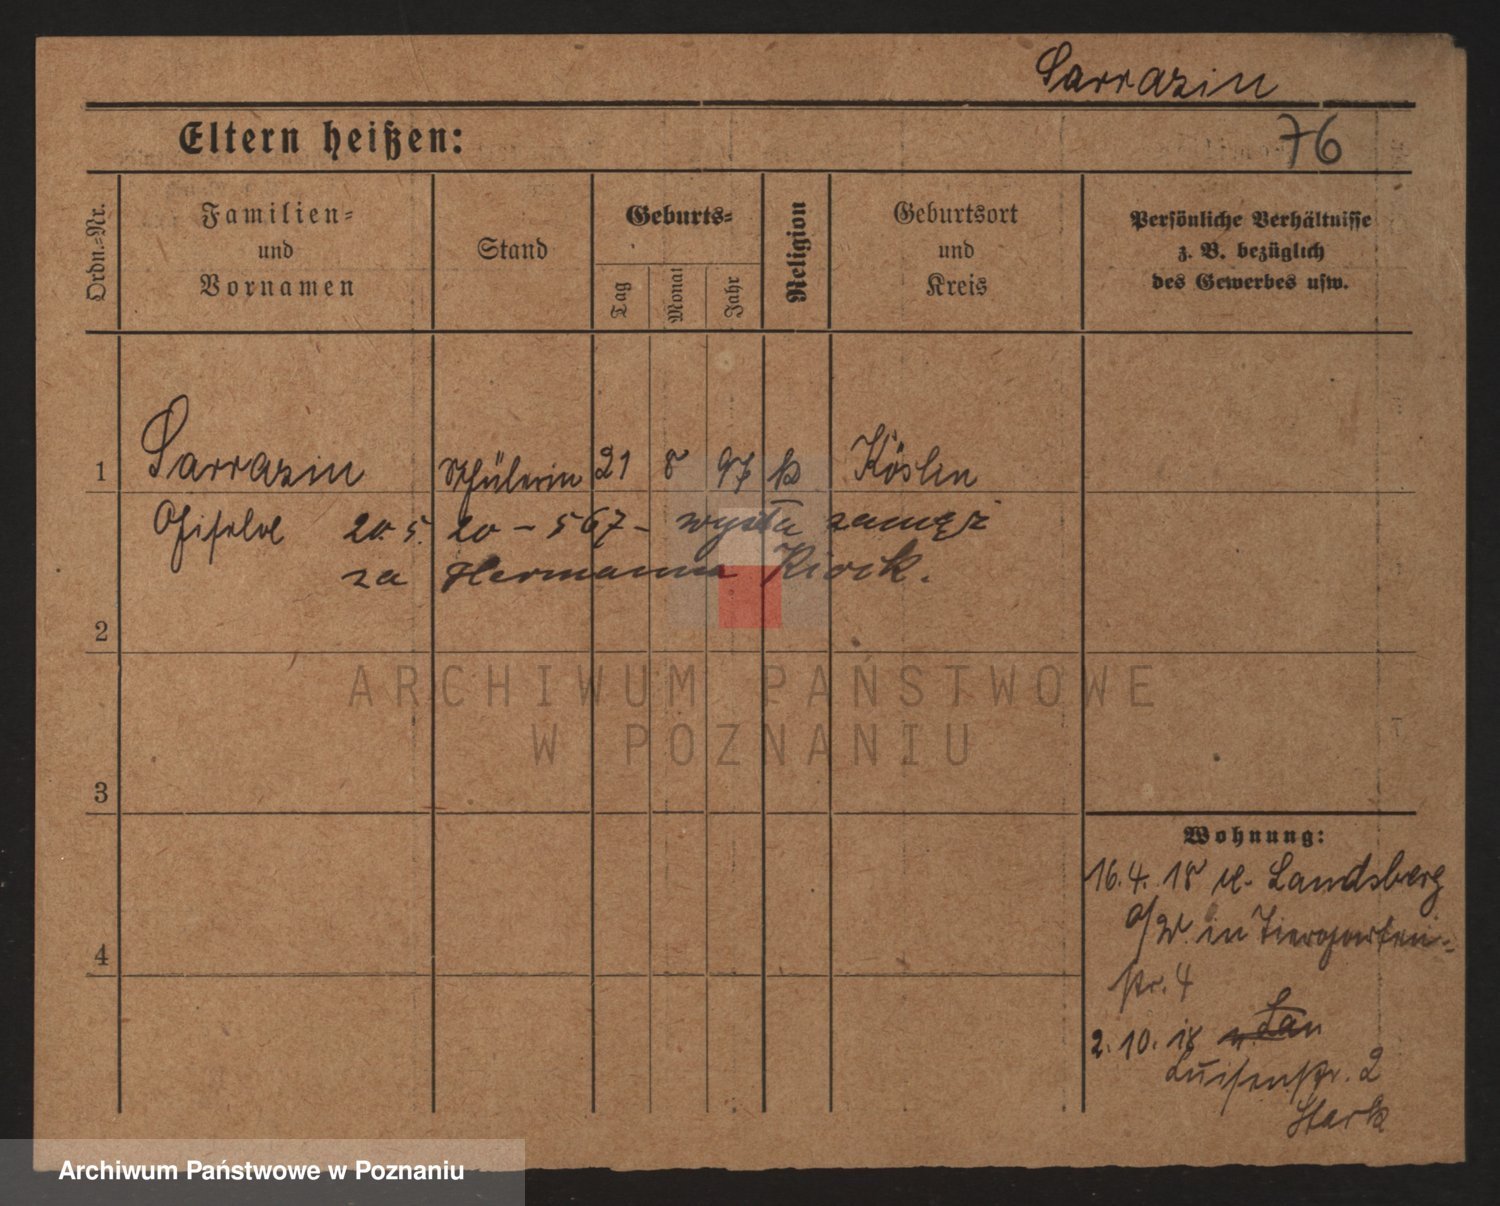 Sarrazin
Eltern heißen:
76
Ordn.-Nr.
Familien-
und
Vornamen
Stand
Geburts-
Tag
Monat
Jahr
Religion
Geburtsort
und
Kreis
Persönliche Verhältnisse
z. B. bezüglich
des Gewerbes usw.
1 Sarrazin Schülerin 21 8 97 Köslin
20.5.20 - 567 - wyszła zamęż
za Hermanna Kiock.
2
3
4
Wohnung:
16.4.18 v. Landsberg
a/W. in Tiergarten-
str. 4
2.10.18 v. Lan
Luisenstr. 2
Stark
ARCHIWUM PAŃSTWOWE
W POZNANIU
Archiwum Państwowe w Poznaniu